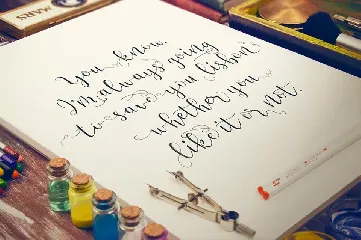 You know,
I'm always going
to save you lisbon
whether you
like it or not.
MARS